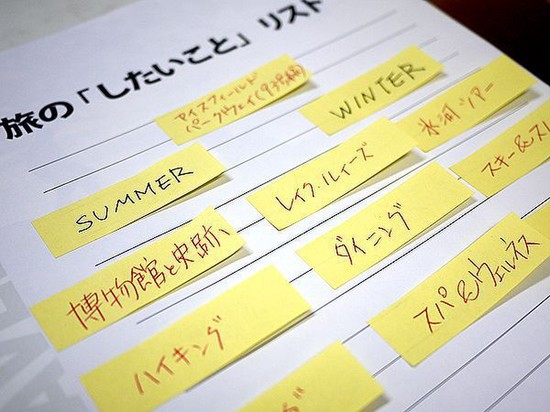 旅の「したいこと」リスト
アイスフィールド
パークウェイ(93号線)
WINTER
氷河ツアー
SUMMER
レイク・ルイーズ
スキー&ス
博物館と史跡
ダイニング
スパ&ウェルネス
ハイキング